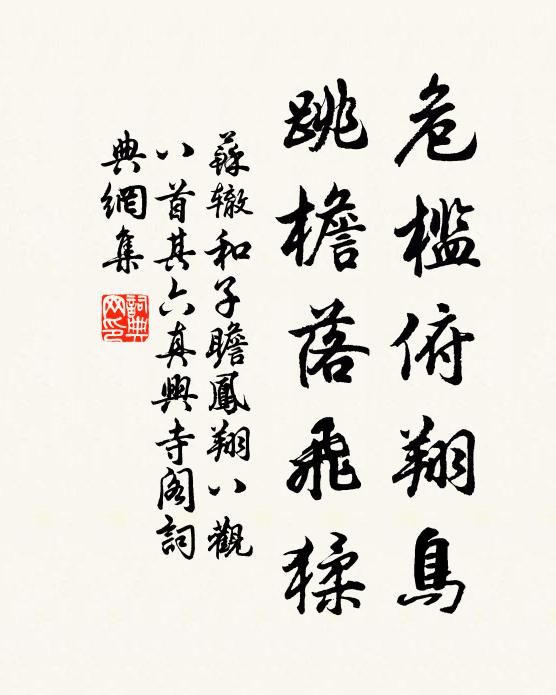 危檻俯翔鳥
跳檐落飛猱
蘇辙和子瞻鳳翔八觀
八首其六真興寺閣詞
典網集
詞典
网印